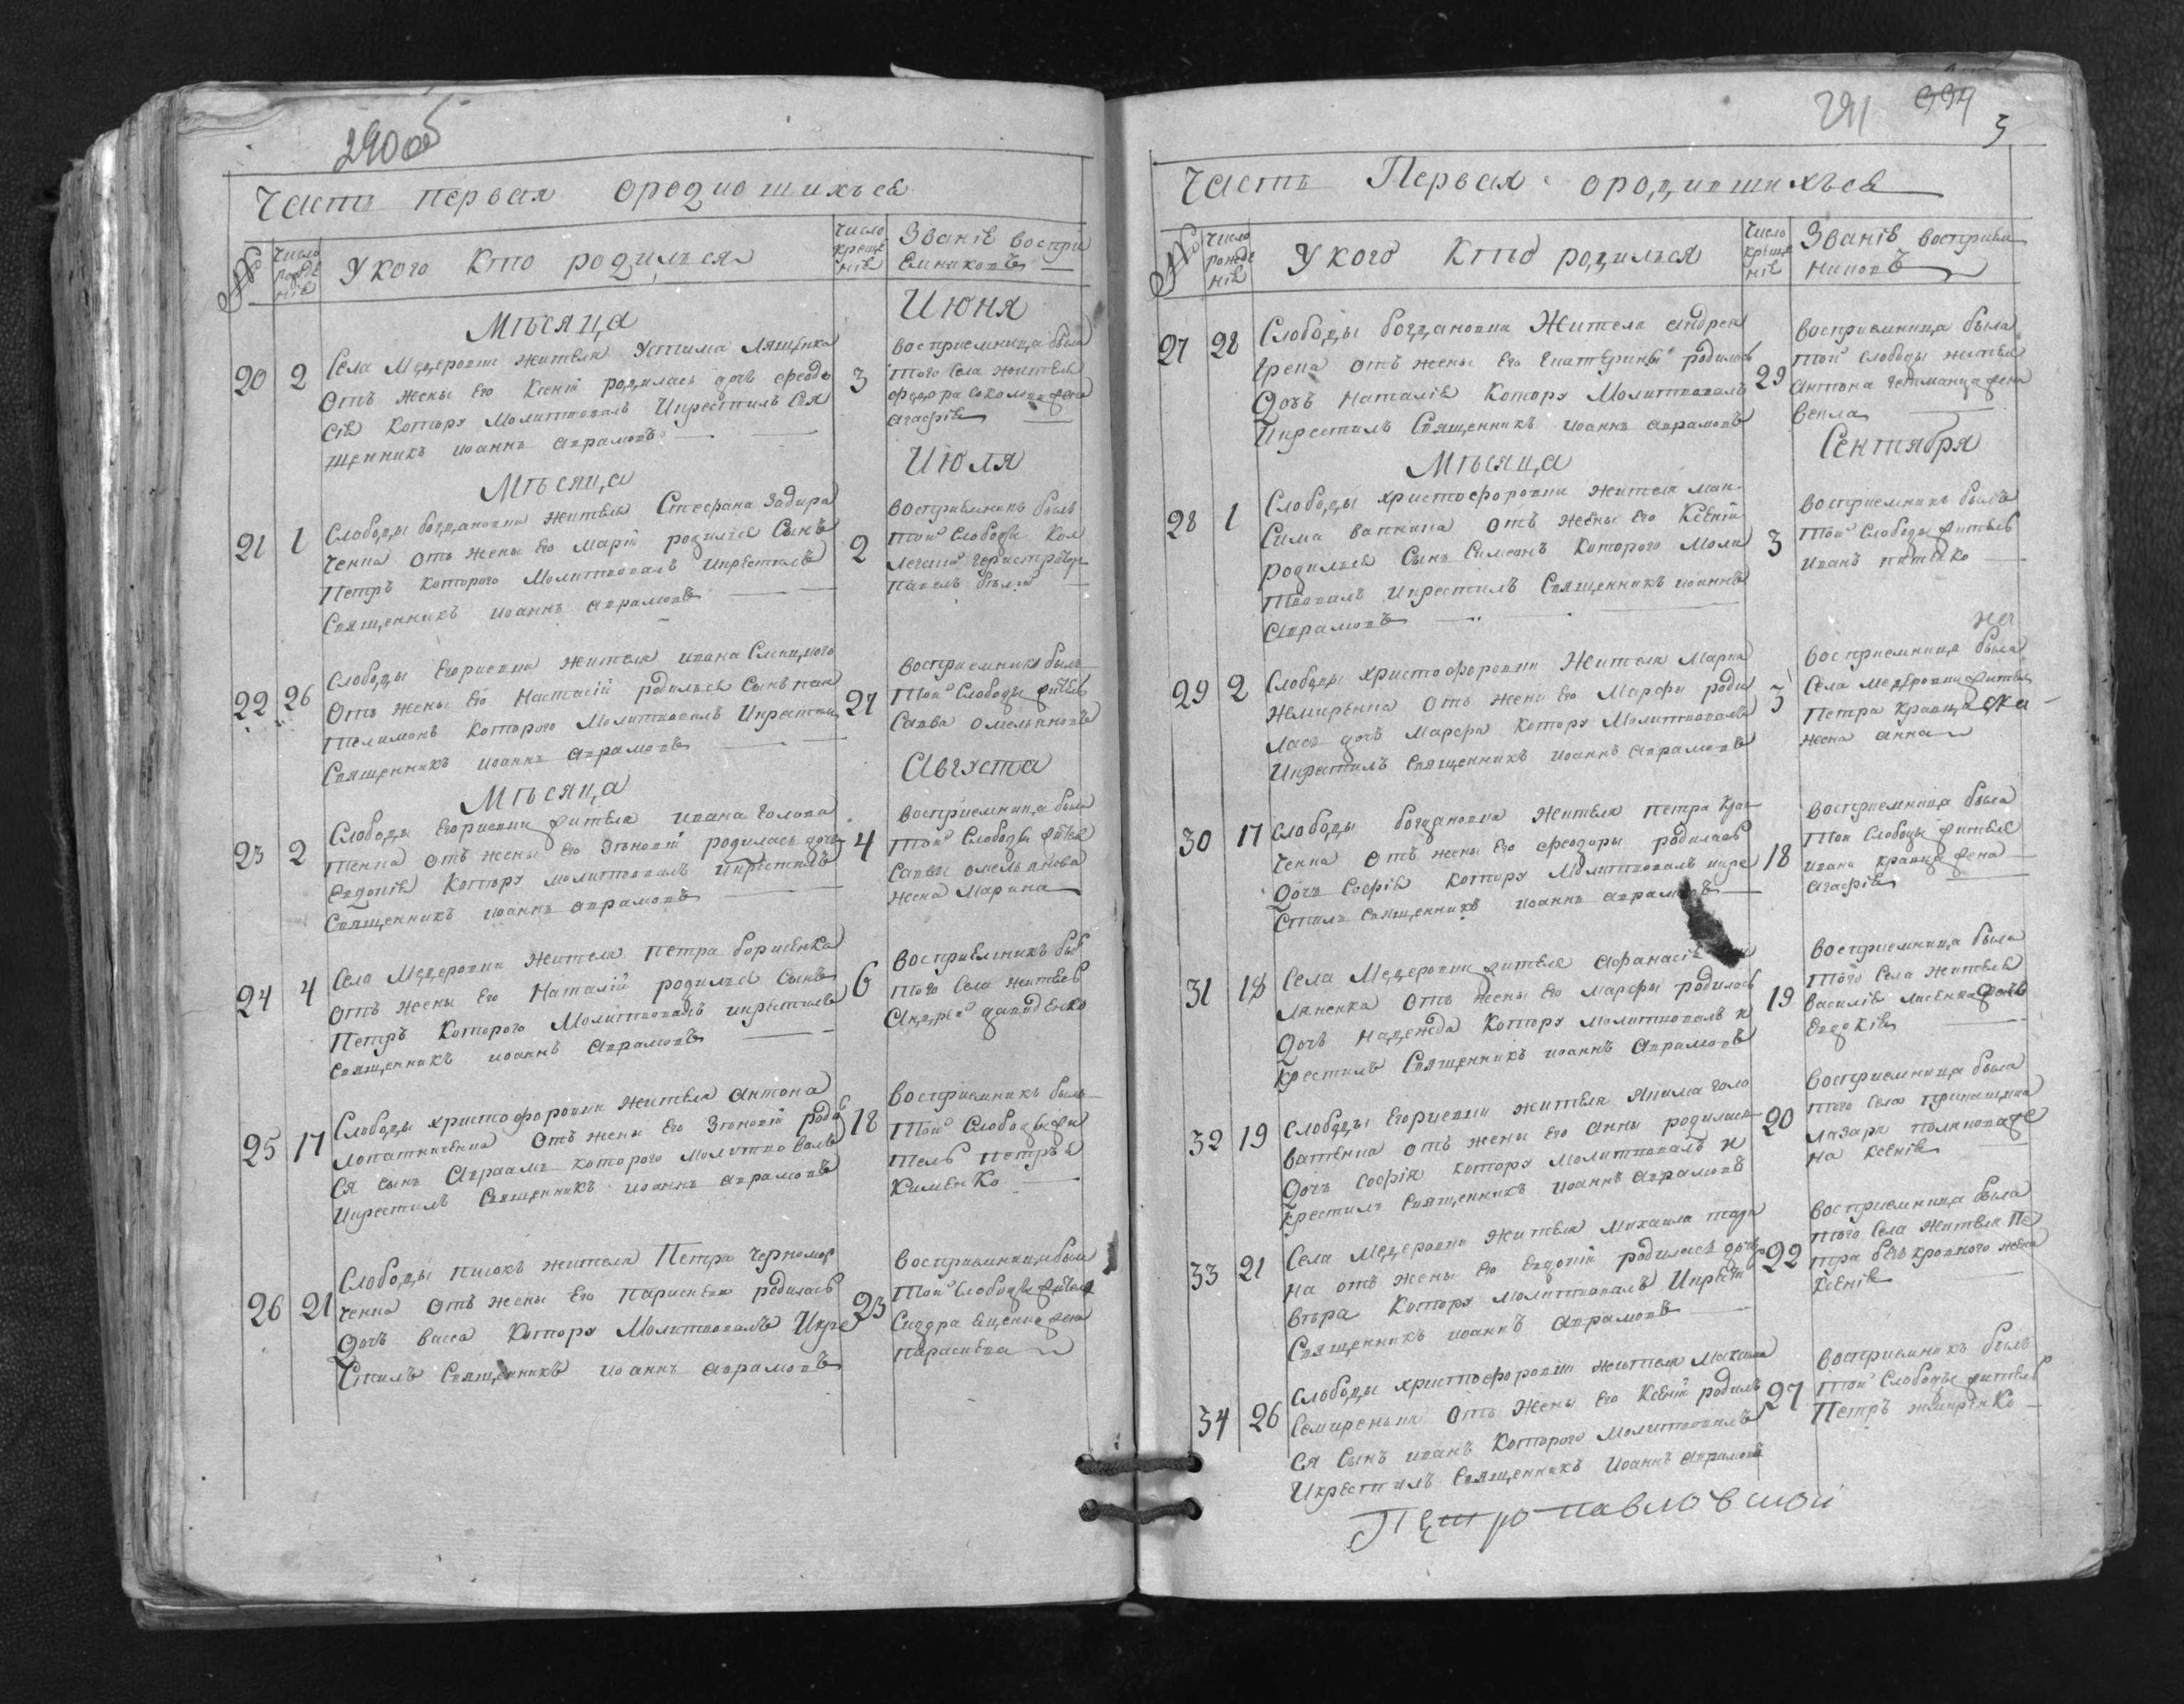 290об
Часть первая ородившихъся
№ Число рожде ніе
У кого Кто родилъся
Число креще ніе
Званіе воспри емниковъ
Мѣсяца Июня
20 2
Села Медеровки жителя Устима Лященка
Отъ жены Его Ксеніи родилась дочь феодо
сіе Котору Молитвовалъ Икрестилъ Свя
щенникъ иоаннъ аврамовъ
3
восприемница была
того Села жителя
федора соколова жена
агафіе
Мѣсяца Июля
21 1
Слободы богдановки жителя Стефана Задира
ченка Отъ жены Его Маріи родился Сынъ
Петръ Которого Молитвовалъ Икрестилъ
Священникъ иоаннъ аврамовъ
2
восприемникъ былъ
той Слободы Кол
легский регистраторъ
павелъ бѣлый
22 26
Слободы Егориевки жителя ивана Слипцого
Отъ жены Его Настасіи родилъся Сынъ пан
телимонъ Которого Молитвовалъ Икрестилъ
Священникъ иоаннъ аврамовъ
27
восприемникъ былъ
Той Слободы житель
Савва омельяновъ
Мѣсяца Августа
23 2
Слободы Егориевки жителя ивана Голова
тенка отъ жены Его Зѣновіи родилась дочь
Евдокіе Котору молитвовалъ икрестилъ
Священникъ иоаннъ аврамовъ
4
восприемница была
той Слободы жителя
Саввы омельянова
жена Марина
24 4
Село Медеровки жителя петра борисенка
отъ жены Его Наталіи родилъся Сынъ
Петръ Которого Молитвовалъ икрестилъ
священникъ иоаннъ Аврамовъ
6
восприемникъ былъ
того Села житель
Андрей давиденко
25 17
Слободы христофоровки жителя Антона
лопатниченка Отъ жены Его Зѣновіи родил
ся сынъ Авраамъ которого молитвовалъ
Икрестилъ Священникъ иоаннъ аврамовъ
18
восприемникъ былъ
той Слободы жи
тель петръ я
Кименко
26 21
Слободы писокъ жителя Петра Черномор
ченка Отъ жены Его параскевы родилась
дочь васса Котору Молитвовалъ Икре
стилъ Священникъ иоаннъ аврамовъ
23
восприемница была
Той Слободы жителя
Сидора Ещенка жена
параскева
291 3
Часть Первая ородившихъся
№ Число рожде ніе
У кого Кто родилъся
Число креще ніе
Званіе восприем никовъ
27 28
Слободы богдановки Жителя андрея
Грека отъ жены Его Екатерины родилась
Дочь Наталіе Котору Молитвовалъ
Икрестилъ Священникъ иоаннъ аврамовъ
29
восприемница была
той слободы жителя
Антона гетманца жена
векла
Мѣсяца Сентября
28 1
Слободы христофоровки жителя Мак
Сима вапника отъ жены Его Ксеніи
родилъся Сынъ Симеонъ Которого Моли
твовалъ Икрестилъ Священникъ иоаннъ
Аврамовъ
3
восприемникъ былъ
той Слободы житель
иванъ пятико
29 2
Слободы христофоровки Жителя Марка
жмиренка Отъ жены Его Марфы роди
лась дочь Марфа Котору Молитвовалъ
Икрестилъ Священникъ иоаннъ аврамовъ
3
восприемница была
Села медеровки жителя
Петра кравца
жена анна
30 17
Слободы богдановки Жителя петра Кра
ченка Отъ жены Его феодоры родилась
дочь Софіе Котору Молитвовалъ икре
стилъ священникъ иоаннъ аврамовъ
18
восприемница была
Той Слободы жителя
ивана кравца жена
агафіе
31 18
Села Медеровки жителя Афанасіе
ляненка Отъ жены Его марфы родилась
Дочь Надежда Котору молитвовалъ и
крестилъ Священникъ иоаннъ Аврамовъ
19
восприемница была
Того Села жителя
василіе лисенка дочь
Евдокіе
32 19
Слободы Егориевки жителя Якима голо
ватенка отъ жены Его анны родилась
Дочь Софія Котору молитвовалъ и
крестилъ Священникъ иоаннъ аврамовъ
20
восприемница была
того Села
лазаря полякова же
на ксеніе
33 21
Села Медеровки Жителя Михаила
на отъ жены Его Евдокіи родилась дочь
вѣра Котору молитвовалъ Икрести
Священникъ иоаннъ аврамовъ
22
восприемница была
того Села жителя Пе
тра безкровного жена
Ксеніе
34 26
Слободы христофоровки жителя Максима
Семиренька Отъ жены Его Ксеніи родилъ
ся Сынъ иванъ Которого Молитвовалъ
Икрестилъ Священникъ иоаннъ аврамовъ
27
восприемникъ былъ
той Слободы житель
Петръ жмиренко
Петропавловской